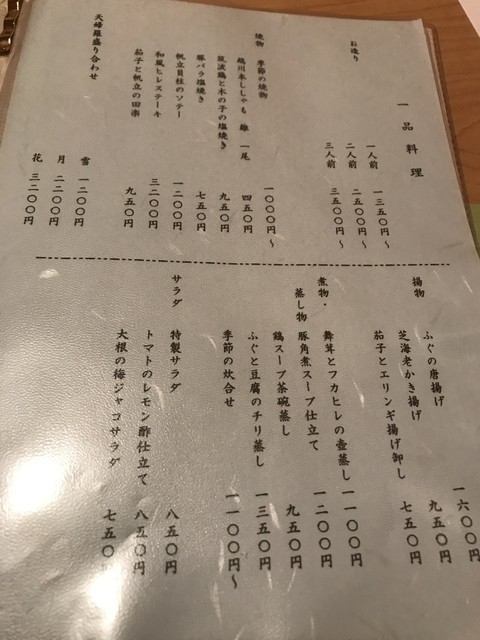 一品料理
お造り
一人前 一三五〇円～
二人前 二五〇〇円～
三人前 三五〇〇円～
焼物
季節の焼物 一〇〇〇円～
鵡川本ししゃも 雄 一尾 四五〇円
筑波鶏と木の子の塩焼き 九五〇円
豚バラ塩焼き 七五〇円
帆立貝柱のソテー 一二〇〇円
和風ヒレステーキ 三二〇〇円
茄子と帆立の田楽 九五〇円
天婦羅盛り合わせ
雪 一二〇〇円
月 二二〇〇円
花 三二〇〇円
揚物
ふぐの唐揚げ 一六〇〇円
芝海老かき揚げ 九五〇円
茄子とエリンギ揚げ卸し 七五〇円
煮物・蒸し物
舞茸とフカヒレの壺蒸し 一一〇〇円
豚角煮スープ仕立て 一二〇〇円
鶏スープ茶碗蒸し 九五〇円
ふぐと豆腐のチリ蒸し 一三五〇円
季節の炊合せ 一一〇〇円～
サラダ
特製サラダ 八五〇円
トマトのレモン酢仕立て 八五〇円
大根と梅ジャコサラダ 七五〇